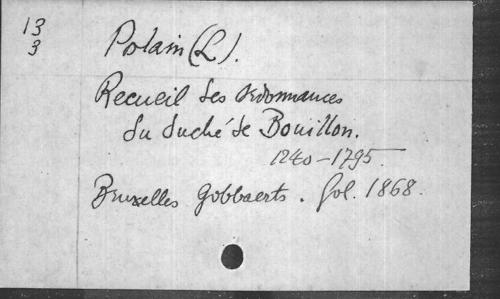 13
3
Polain (L).
Recueil des ordonnances
du duché de Bouillon.
1240-1795.
Bruxelles Gobbaerts. fol. 1868.